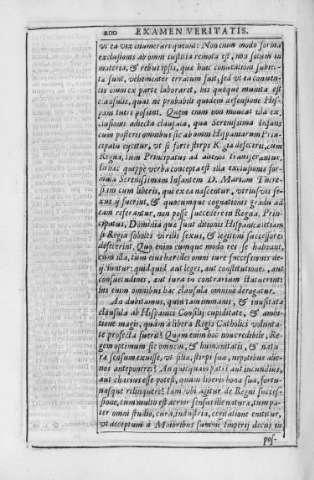 200 EXAMEN VERITATIS.
ut ea vix enumerari queant: Non enim modo forma
exclusionis ab omni iustitia remota est, ma
materia, & rebus ipsis, quæ huic
sunt, vehementer erratum fuit, sed ut ea
omni ex parte laboraret, his quoque munita est
clausulis, quas ne probabili quidem
tueri possint. Quem enim non moveat illa
clausionis adiecta clausula, qua Serenissima Infans
cum posteris omnibus sic ab omni Hispaniarum Prin-
cipatu eijcitur, ut si forte stirps Regia deficeret, cum
Regna, tum Principatus ad alienos transferantur.
quippe verba concepta est illa exclusionis for-
mula Serenissimam Infantem D. Mariam
siam cum liberis, qui ex ea nascentur, utrius vis se-
xus fuerint, & quocumque cognationis gradu ad
eam referantur, non posse succedere in Regna, Prin-
cipatus, Dominia quæ sunt ditionis Hispanicæ: etiam
si Regia soboles virilis sexus, & legitimi successores
desierint. Quo enim cumque modo res se habeant,
cum illa, tum eius hæredes omni iure successionis de-
ijciuntur: quidquid aut leges, aut constitutiones, aut
consuetudines, aut iura in contrarium statuerint:
his enim omnibus hæc clausula omnino derogatur.
An dubitamus, quin tam immanis, & inusitata
clausula ab Hispanici Consilij cupiditate, & ambi-
tione magis, quàm à libera Regis Catholici volunta-
te profecta fuerit? Quem enim hoc non credibile, Re-
gem optimum sic omnem, & humanitatis, & natu-
ræ sensum exuisse, ut filiæ, stirpi suæ, nepotibus alie-
nos anteponeret? An quicquam patri aut iucundius,
aut charius esse potest, quàm liberis bona sua, fortu-
nasque relinquere? Iam ubi agitur de Regni succes-
sione, cum multò est acrior sensus ille naturæ, tum pa-
ter omni studio, cura, industria, cogitatione enititur,
ut acceptum à Maioribus summi Imperij decus in
pos-